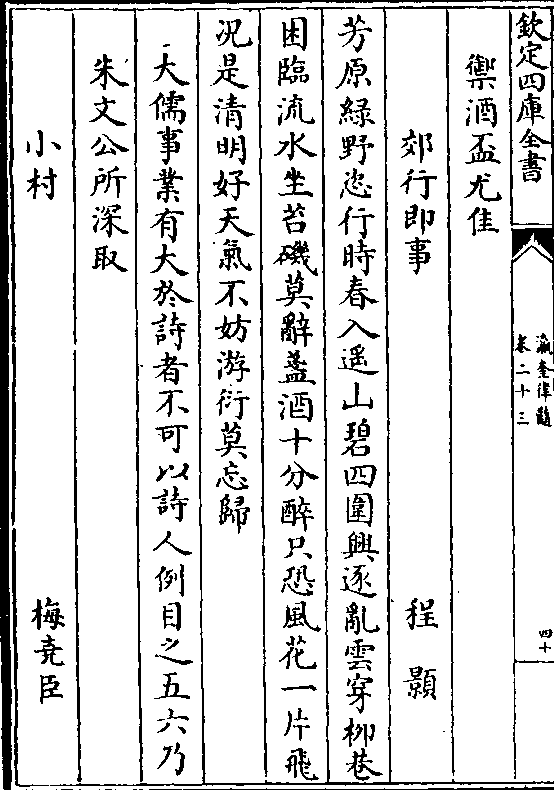 欽定四庫全書
瀛奎律髓
卷二十三
四十
禦酒盃尤佳
郊行即事 程顥
芳原綠野恣行時春入遥山碧四圍興逐亂雲穿柳巷
困臨流水坐苔磯莫辭盞酒十分醉只恐風花一片飛
况是清明好天氣不妨游衍莫忘歸
大儒事業有大於詩者不可以詩人例目之五六乃
朱文公所深取
小村 梅堯臣